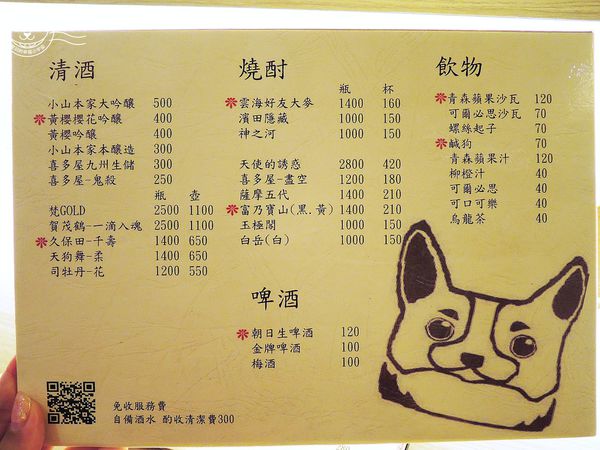 清酒
小山本家大吟釀 500
黃櫻櫻花吟釀 400
黃櫻吟釀 400
小山本家本釀造 300
喜多屋九州生儲 300
喜多屋-鬼殺 250
瓶 壺
梵GOLD 2500 1100
賀茂鶴-一滴入魂 2500 1100
久保田-千壽 1400 650
天狗舞-柔 1400 650
司牡丹-花 1200 550
燒酎
瓶 杯
雲海好友大麥 1400 160
濱田隱藏 1000 150
神之河 1000 150
天使的誘惑 2800 420
喜多屋-盡空 1200 180
薩摩五代 1400 210
富乃寶山(黑.黃) 1400 210
玉極閣 1000 150
白岳(白) 1000 150
啤酒
朝日生啤酒 120
金牌啤酒 100
梅酒 100
飲物
青森蘋果沙瓦 120
可爾必思沙瓦 70
螺絲起子 70
鹹狗 70
青森蘋果汁 120
柳橙汁 40
可爾必思 40
可口可樂 40
烏龍茶 40
免收服務費
自備酒水 酌收清潔費300